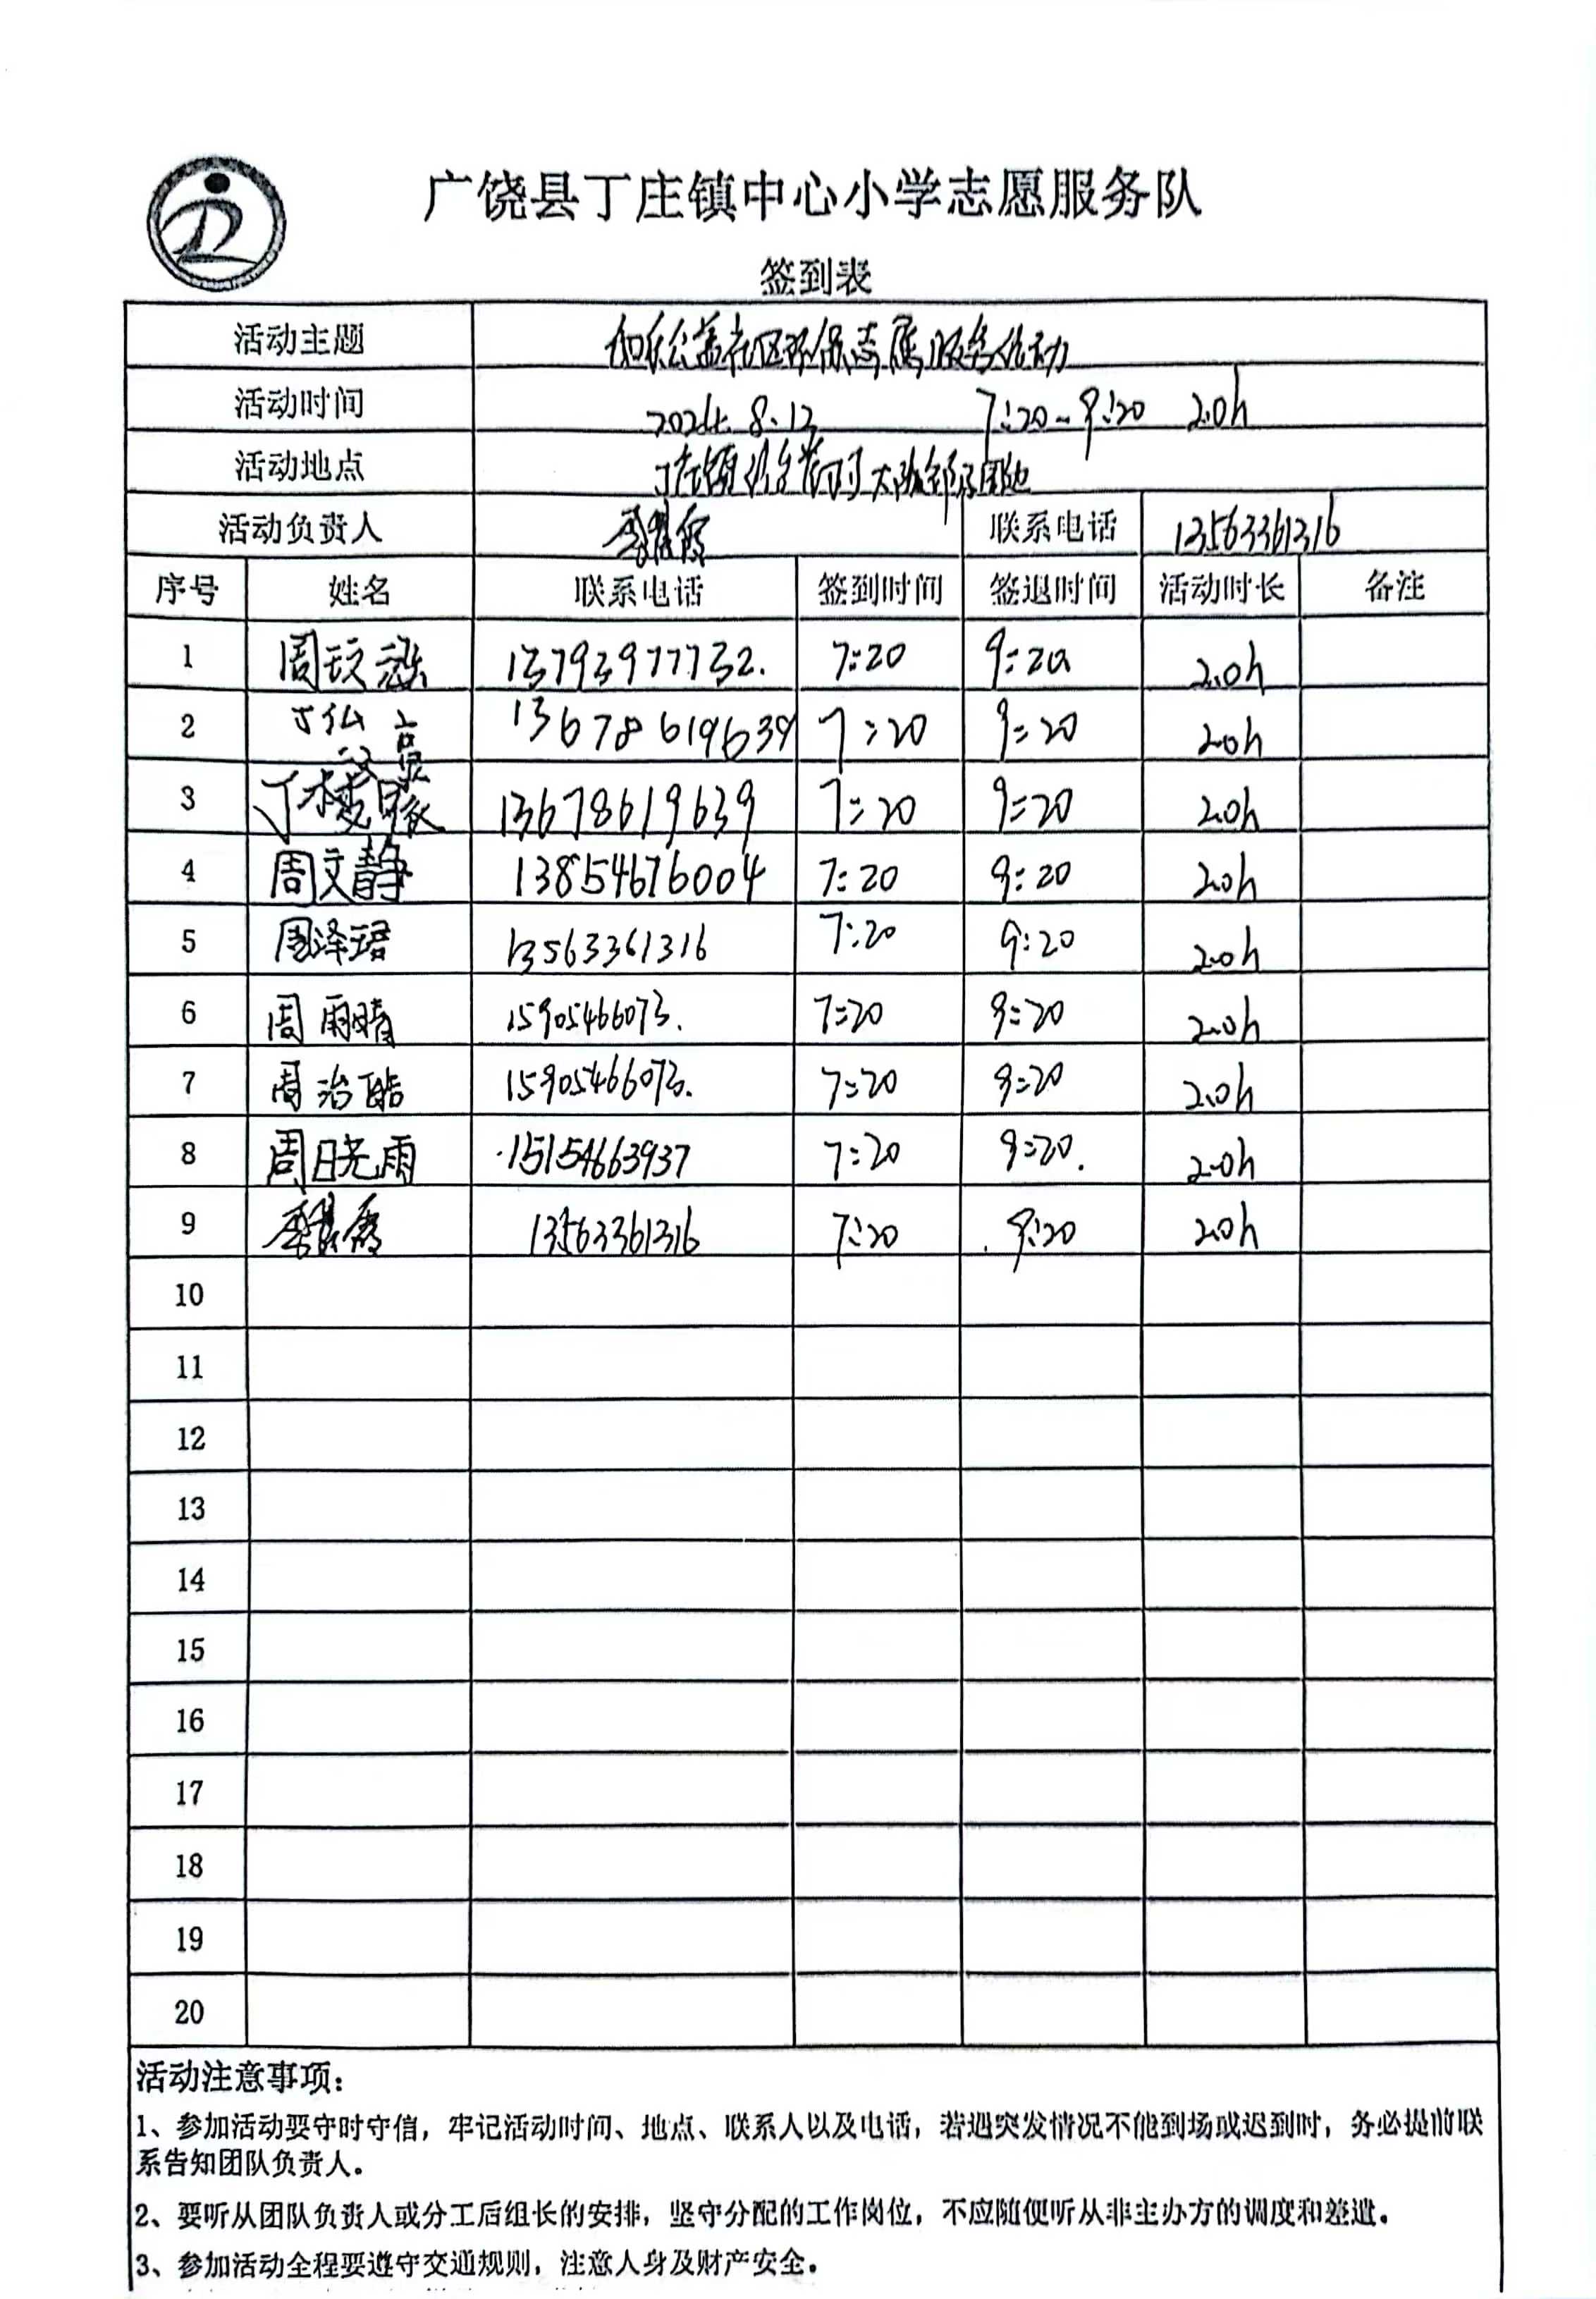 广饶县丁庄镇中心小学志愿服务队
签到表
活动主题 公益社区环保志愿服务活动
活动时间 2024. 8.12 7:20-9:20 2.0h
活动地点 丁庄镇
活动负责人 联系电话 13563361316
序号 姓名 联系电话 签到时间 签退时间 活动时长 备注
1 周玟泓 13793977732. 7:20 9:20 2.0h
2 丁 13678619639 7:20 9:20 2.0h
3 丁 13678619639 7:20 9:20 2.0h
4 周文静 13854676004 7:20 9:20 2.0h
5 周泽珺 13563361316 7:20 9:20 2.0h
6 周雨晴 15905466073. 7:20 9:20 2.0h
7 周治皓 15905466073. 7:20 9:20 2.0h
8 周晓雨 15154663937 7:20 9:20. 2.0h
9 13563361316 7:20 9:20 2.0h
10
11
12
13
14
15
16
17
18
19
20
活动注意事项：
1、参加活动要守时守信，牢记活动时间、地点、联系人以及电话，若遇突发情况不能到场或迟到时，务必提前联
系告知团队负责人。
2、要听从团队负责人或分工后组长的安排，坚守分配的工作岗位，不应随便听从非主办方的调度和差遣。
3、参加活动全程要遵守交通规则，注意人身及财产安全。